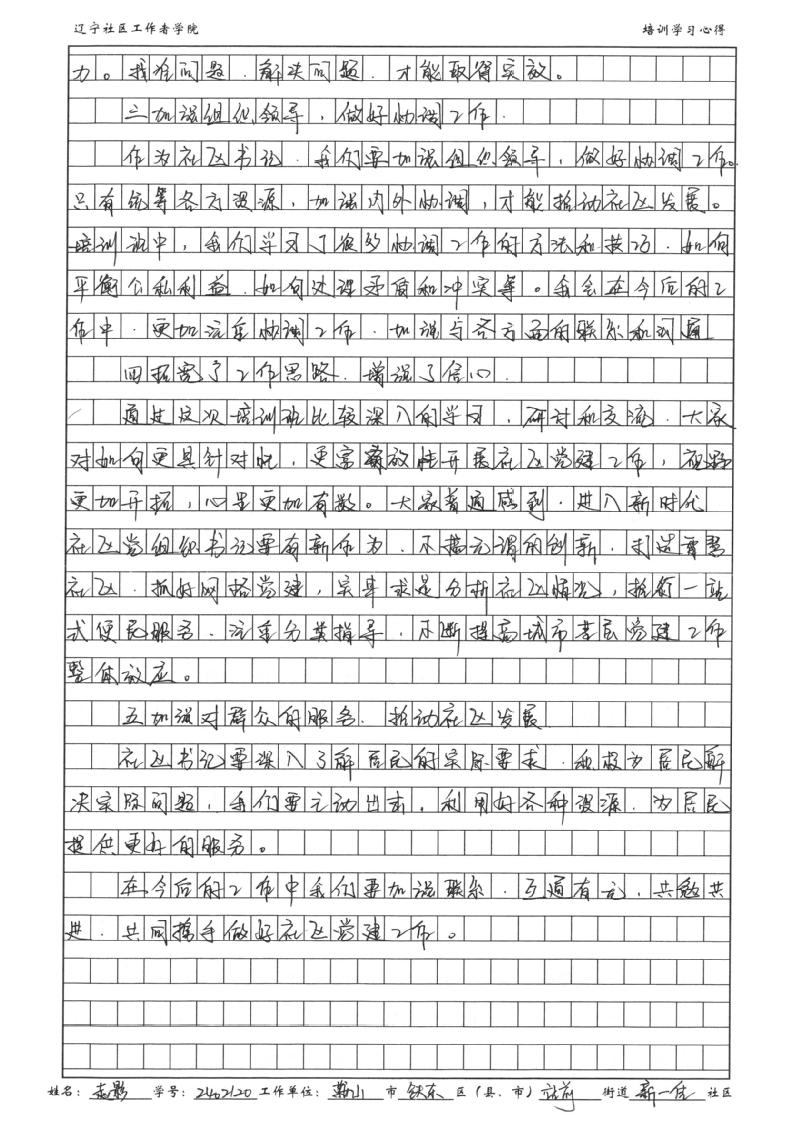 辽宁社区工作者学院 培训学习心得
力。找准问题、解决问题、才能取得实效。
三加强组织领导，做好协调工作.
作为社区书记、我们要加强组织领导，做好协调工作。
只有统筹各方资源，加强内外协调，才能推动社区发展。
培训班中，我们学习了很多协调工作的方法和技巧.如何
平衡公私利益、如何处理矛盾和冲突等。我会在今后的工
作中、更加注重协调工作、加强与各方面的联系和沟通
四拓宽了工作思路、增强了信心.
通过这次培训班比较深入的学习，研讨和交流、大家
对如何更具针对性，更富有效性开展社区党建工作，视野
更加开拓，心里更加有数。大家普遍感到、进入新时代
社区党组织书记要有新作为、不搞无谓的创新、打造智慧
社区、抓好网格党建，实事求是分析社区情况，推行一站
式便民服务、注重分类指导，不断提高城市基层党建工作
整体效应。
五加强对群众的服务、推动社区发展
社区书记要深入了解居民的实际要求、积极为居民解
决实际问题，我们要主动出击，利用好各种资源、为居民
提供更好的服务。
在今后的工作中我们要加强联系、互通有无，共勉共
进、共同携手做好社区党建工作。
姓名：赵影 学号：2402120 工作单位：鞍山 市 铁东 区（县、市）站前 街道 新一佳 社区